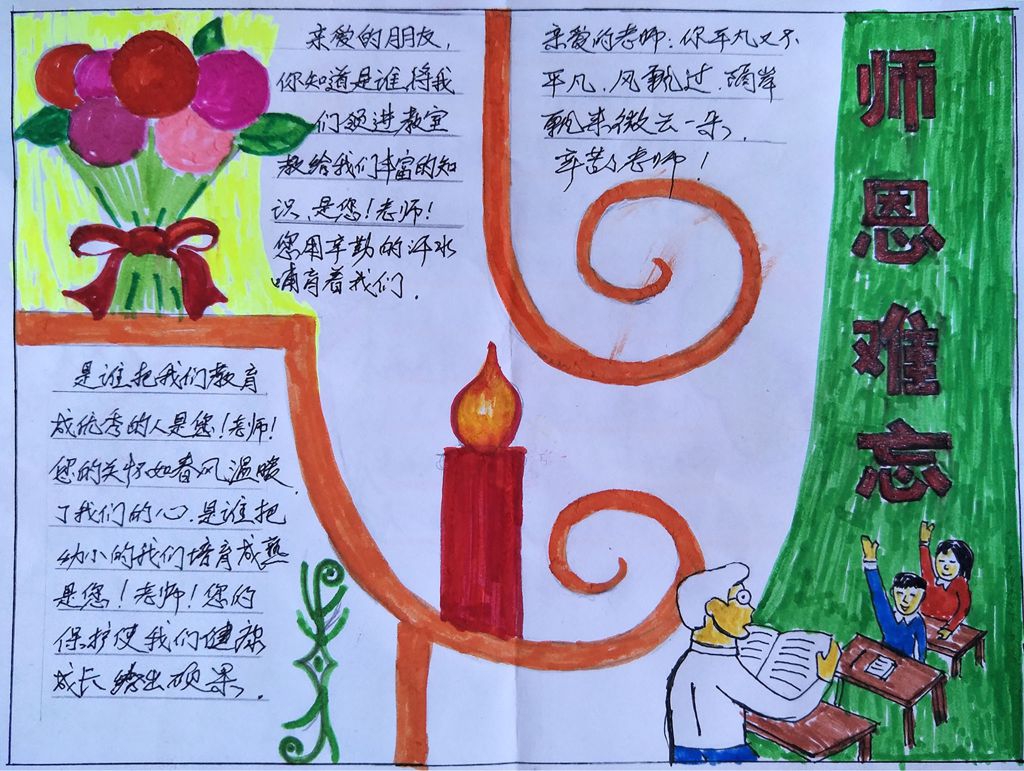 师恩难忘
亲爱的朋友，
你知道是谁，将我
们领进教室
教给我们丰富的知
识，是您！老师！
您用辛勤的汗水
哺育着我们．
亲爱的老师：你平凡又不
平凡，风飘过，
飘来微云一朵，
辛苦了老师！
是谁把我们教育
成优秀的人是您！老师！
您的关怀如春风温暖
了我们的心．是谁把
幼小的我们培育成熟
是您！老师！您的
保护使我们健康
成长 结出硕果．